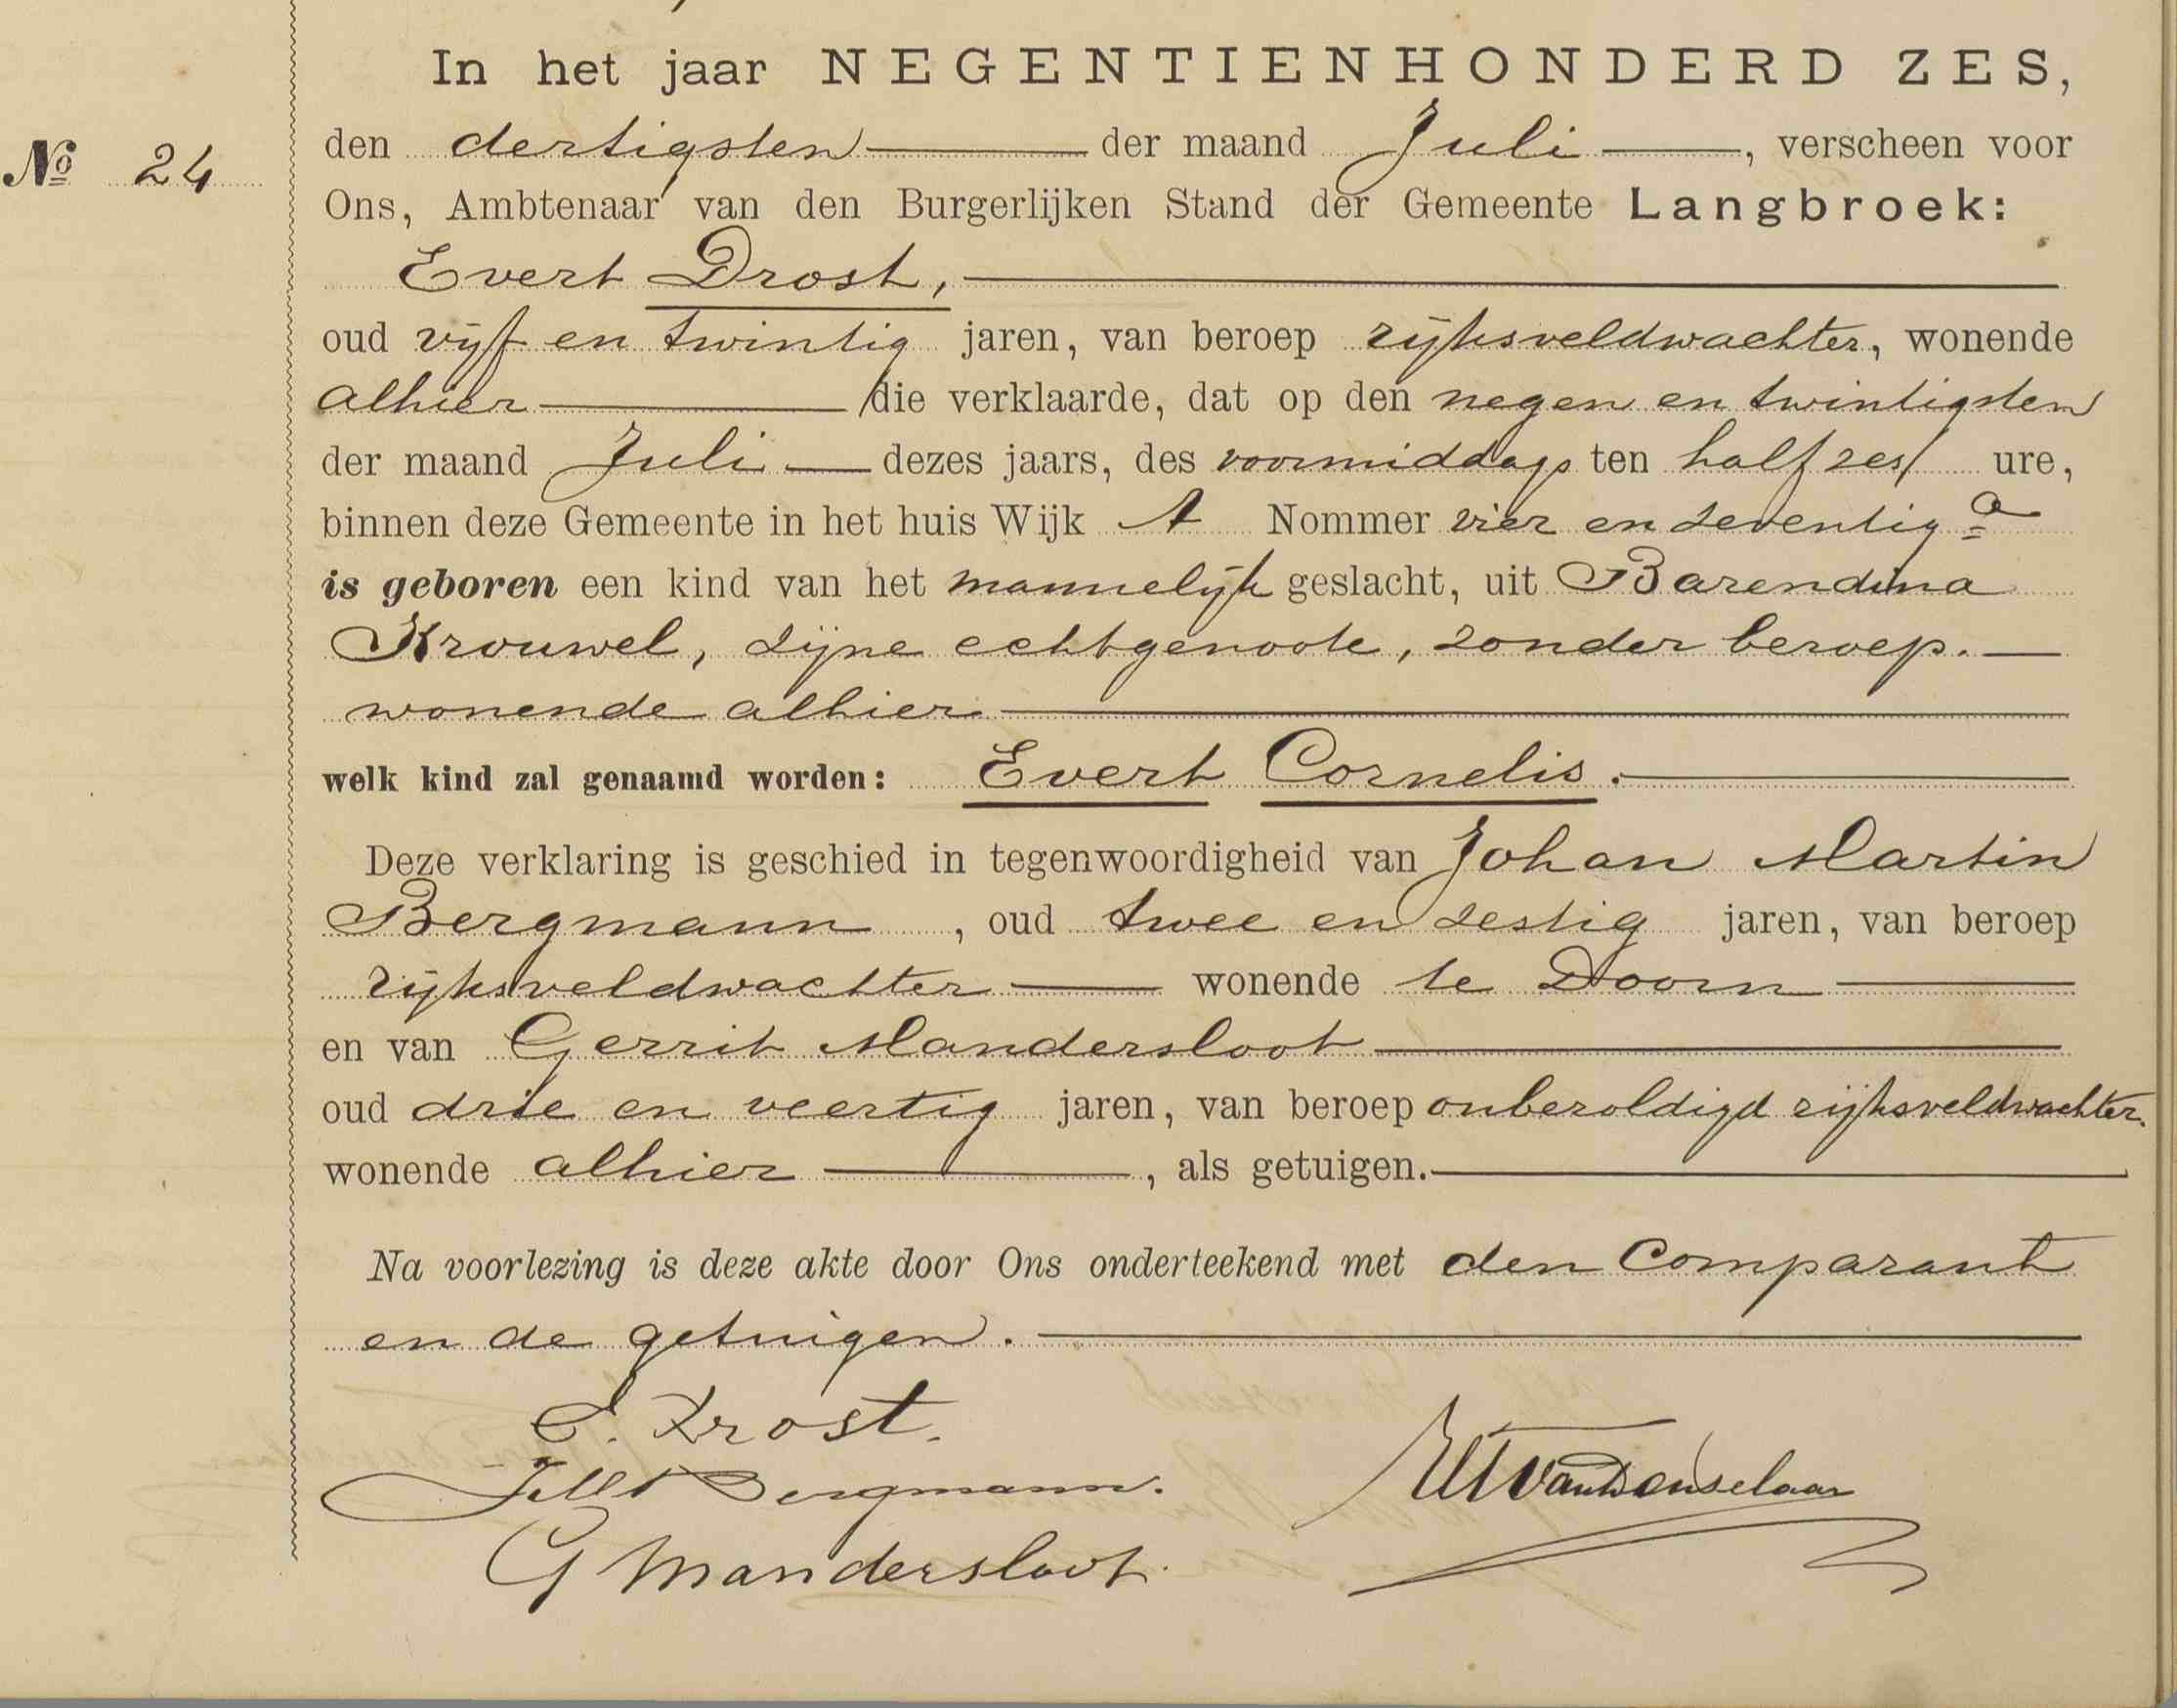 In het jaar NEGENTIENHONDERD ZES,
den dertigsten der maand Juli, verscheen voor
No 24
Ons, Ambtenaar van den Burgerlijken Stand der Gemeente Langbroek:
Evert Drost,
oud vijf en twintig jaren, van beroep rijksveldwachter, wonende
alhier die verklaarde, dat op den negen en twintigsten
der maand Juli dezes jaars, des voormiddags ten half zes ure,
binnen deze Gemeente in het huis Wijk A Nommer vier en zeventig a
is geboren een kind van het mannelijk geslacht, uit Barendina
Krouwel, zijne echtgenoote, zonder beroep.
wonende alhier
welk kind zal genaamd worden: Evert Cornelis.
Deze verklaring is geschied in tegenwoordigheid van Johan Martin
Bergmann, oud twee en zestig jaren, van beroep
rijksveldwachter wonende te Doorn
en van Gerrit Mandersloot
oud drie en veertig jaren, van beroep onbezoldigd rijksveldwachter.
wonende alhier, als getuigen.
Na voorlezing is deze akte door Ons onderteekend met den Comparant
en de getuigen.
E. Drost.
Bergmann.
G Mandersloot.